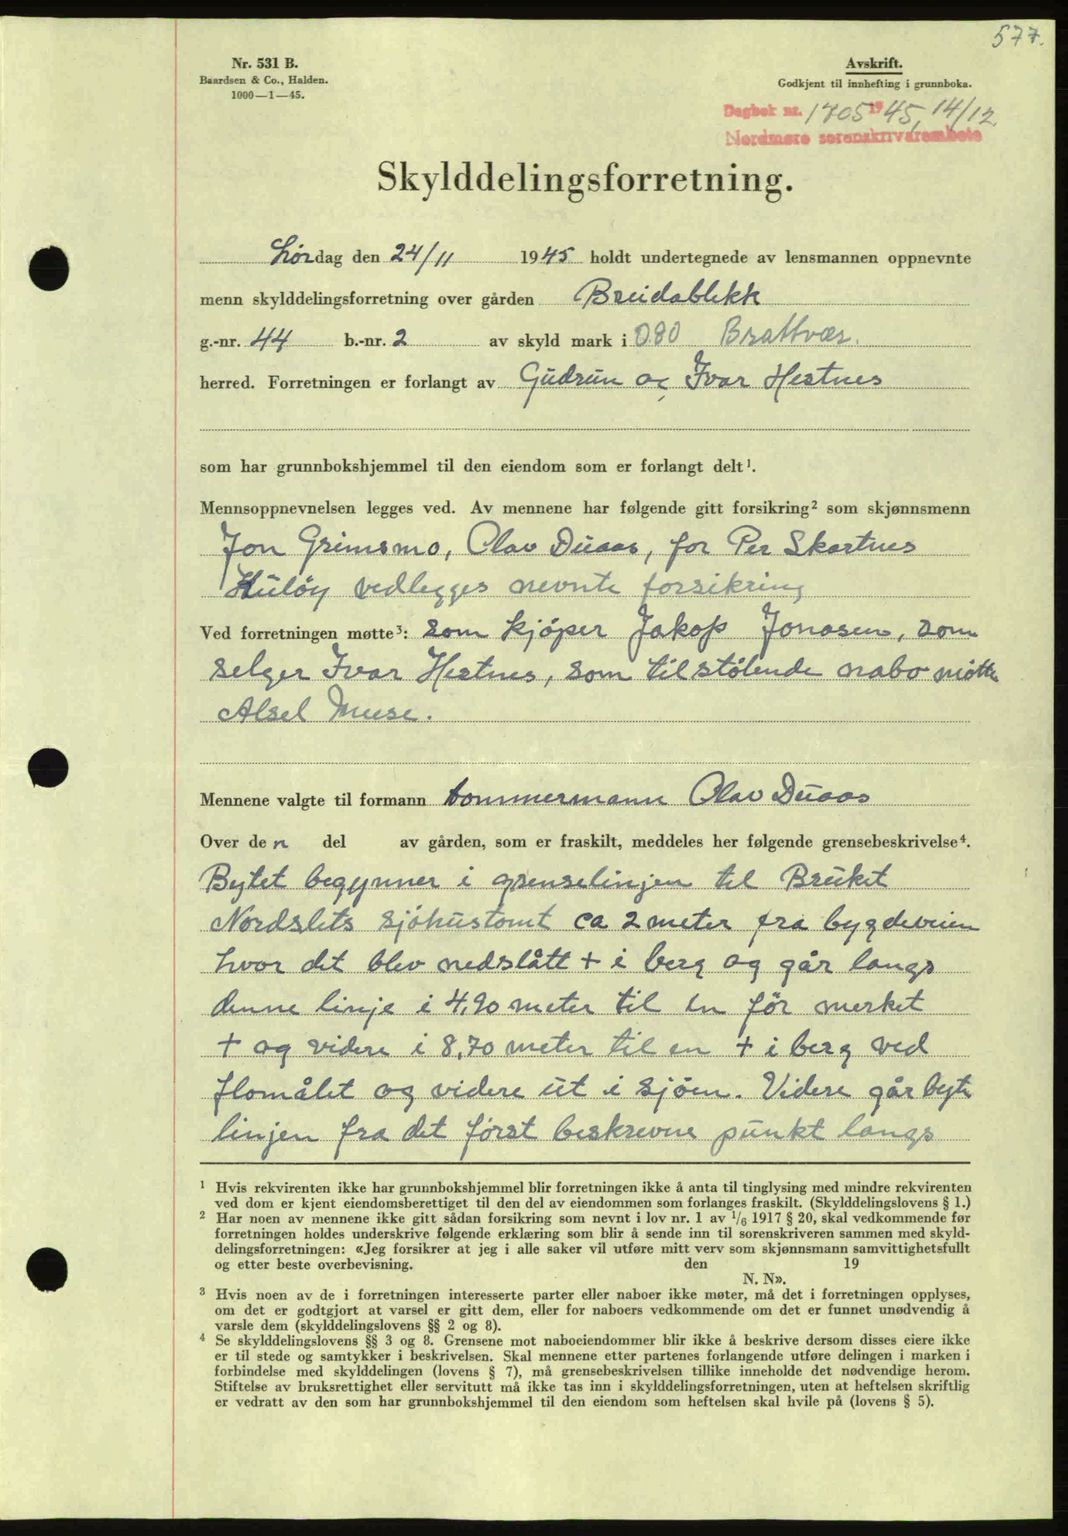 577.
Nr. 531 B.
Baardsen & Co., Halden.
1000—1—45.
Avskrift.
Godkjent til innhefting i grunnboka.
Dagbok nr. 1705 1945, 14/12
Nordmøre sorenskrivarembete
Skylddelingsforretning.
Lørdag den 24/11 1945 holdt undertegnede av lensmannen oppnevnte
menn skylddelingsforretning over gården Breidablikk
g.-nr. 44 b.-nr. 2 av skyld mark i 0.80 Brattvær.
herred. Forretningen er forlangt av Gudrun og Ivar Hestnes
som har grunnbokshjemmel til den eiendom som er forlangt delt¹.
Mennsoppnevnelsen legges ved. Av mennene har følgende gitt forsikring² som skjønnsmenn
Jon Grimsmo, Olav Duaas, for Per Skartnes
Huløy vedlegges nevnte forsikring
Ved forretningen møtte³: som kjøper Jakop Jonasen, som
selger Ivar Hestnes, som tilstøtende nabo møtte
Alsel Muse.
Mennene valgte til formann tommermann Olav Duaas
Over den del av gården, som er fraskilt, meddeles her følgende grensebeskrivelse⁴.
Bytet begynner i grenselinjen til Bruket
Nordslets sjøhustomt ca 2 meter fra bygdeveien
hvor det blev nedslått + i berg og går langs
denne linje i 4,20 meter til en før merket
+ og videre i 8,70 meter til en + i berg ved
flomålet og videre ut i sjøen. Videre går byte
linjen fra det først beskrevne punkt langs
¹ Hvis rekvirenten ikke har grunnbokshjemmel blir forretningen ikke å anta til tinglysing med mindre rekvirenten
ved dom er kjent eiendomsberettiget til den del av eiendommen som forlanges fraskilt. (Skylddelingslovens § 1.)
² Har noen av mennene ikke gitt sådan forsikring som nevnt i lov nr. 1 av 1/6 1917 § 20, skal vedkommende før
forretningen holdes underskrive følgende erklæring som blir å sende inn til sorenskriveren sammen med skyld-
delingsforretningen: «Jeg forsikrer at jeg i alle saker vil utføre mitt verv som skjønnsmann samvittighetsfullt
og etter beste overbevisning. den 19
N. N».
³ Hvis noen av de i forretningen interesserte parter eller naboer ikke møter, må det i forretningen opplyses,
om det er godtgjort at varsel er gitt dem, eller for naboers vedkommende om det er funnet unødvendig å
varsle dem (skylddelingslovens §§ 2 og 8).
⁴ Se skylddelingslovens §§ 3 og 8. Grensene mot naboeiendommer blir ikke å beskrive dersom disses eiere ikke
er til stede og samtykker i beskrivelsen. Skal mennene etter partenes forlangende utføre delingen i marken i
forbindelse med skylddelingen (lovens § 7), må grensebeskrivelsen tillike inneholde det nødvendige herom.
Stiftelse av bruksrettighet eller servitutt må ikke tas inn i skylddelingsforretningen, uten at heftelsen skriftlig
er vedratt av den som har grunnbokshjemmel til den eiendom som heftelsen skal hvile på (lovens § 5).